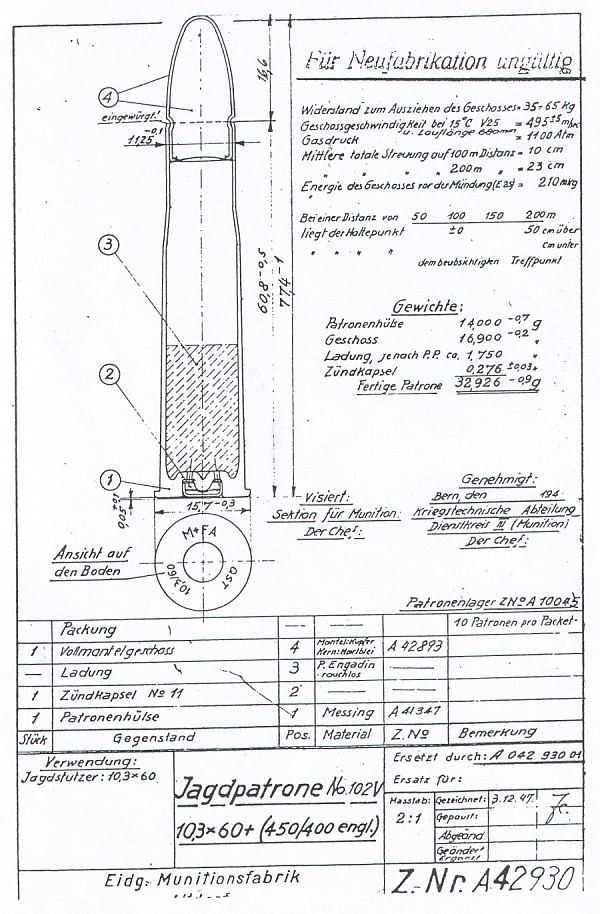 Für Neufabrikation ungültig
Widerstand zum Ausziehen des Geschosses = 35÷65 Kg
Geschossgeschwindigkeit bei 15°C V25 = 495 ±15 m/sek
u. Lauflänge 680mm
Gasdruck = 1100 Atm
Mittlere totale Streuung auf 100 m Distanz = 10 cm
" " " " 200 m " = 23 cm
Energie des Geschosses vor der Mündung (E25) = 210 mkg
Bei einer Distanz von 50 100 150 200 m
liegt der Haltepunkt ±0 50 cm über
" " " " cm unter
dem beabsichtigten Treffpunkt
Gewichte:
Patronenhülse 14,000 -0,7 g
Geschoss 16,900 -0,2 "
Ladung, je nach P.P. ca. 1,750 "
Zündkapsel 0,276 ±0,03 "
Fertige Patrone 32,926 -0,9 g
4
eingewürgt!
11,25 -0,1
16,6
3
60,8 -0,5
77,4 -1
2
1
15,7 -0,3
Ansicht auf
den Boden
M+FA
OST
10,3/60
Visiert:
Sektion für Munition:
Der Chef:
Genehmigt:
Bern, den 194
Kriegstechnische Abteilung
Dienstkreis III (Munition)
Der Chef:
Patronenlager Z.No A 10045
Packung — — — 10 Patronen pro Packet
1 Vollmantelgeschoss 4 Mantel: Kupfer Kern: Hartblei A 42893
— Ladung 3 P. Engadin rauchlos —
1 Zündkapsel No 11 2 — —
1 Patronenhülse 1 Messing A 41347
Stück Gegenstand Pos. Material Z.No Bemerkung
Verwendung:
Jagdstutzer: 10,3×60
Jagdpatrone No. 102V
10,3×60+ (450/400 engl.)
Ersetzt durch: A 042 930 01
Ersatz für:
Masstab: 2:1
Gezeichnet: 3.12.47.
Gepaust:
Abgeänd.
Geändert
Eidg. Munitionsfabrik
Z. Nr. A42930